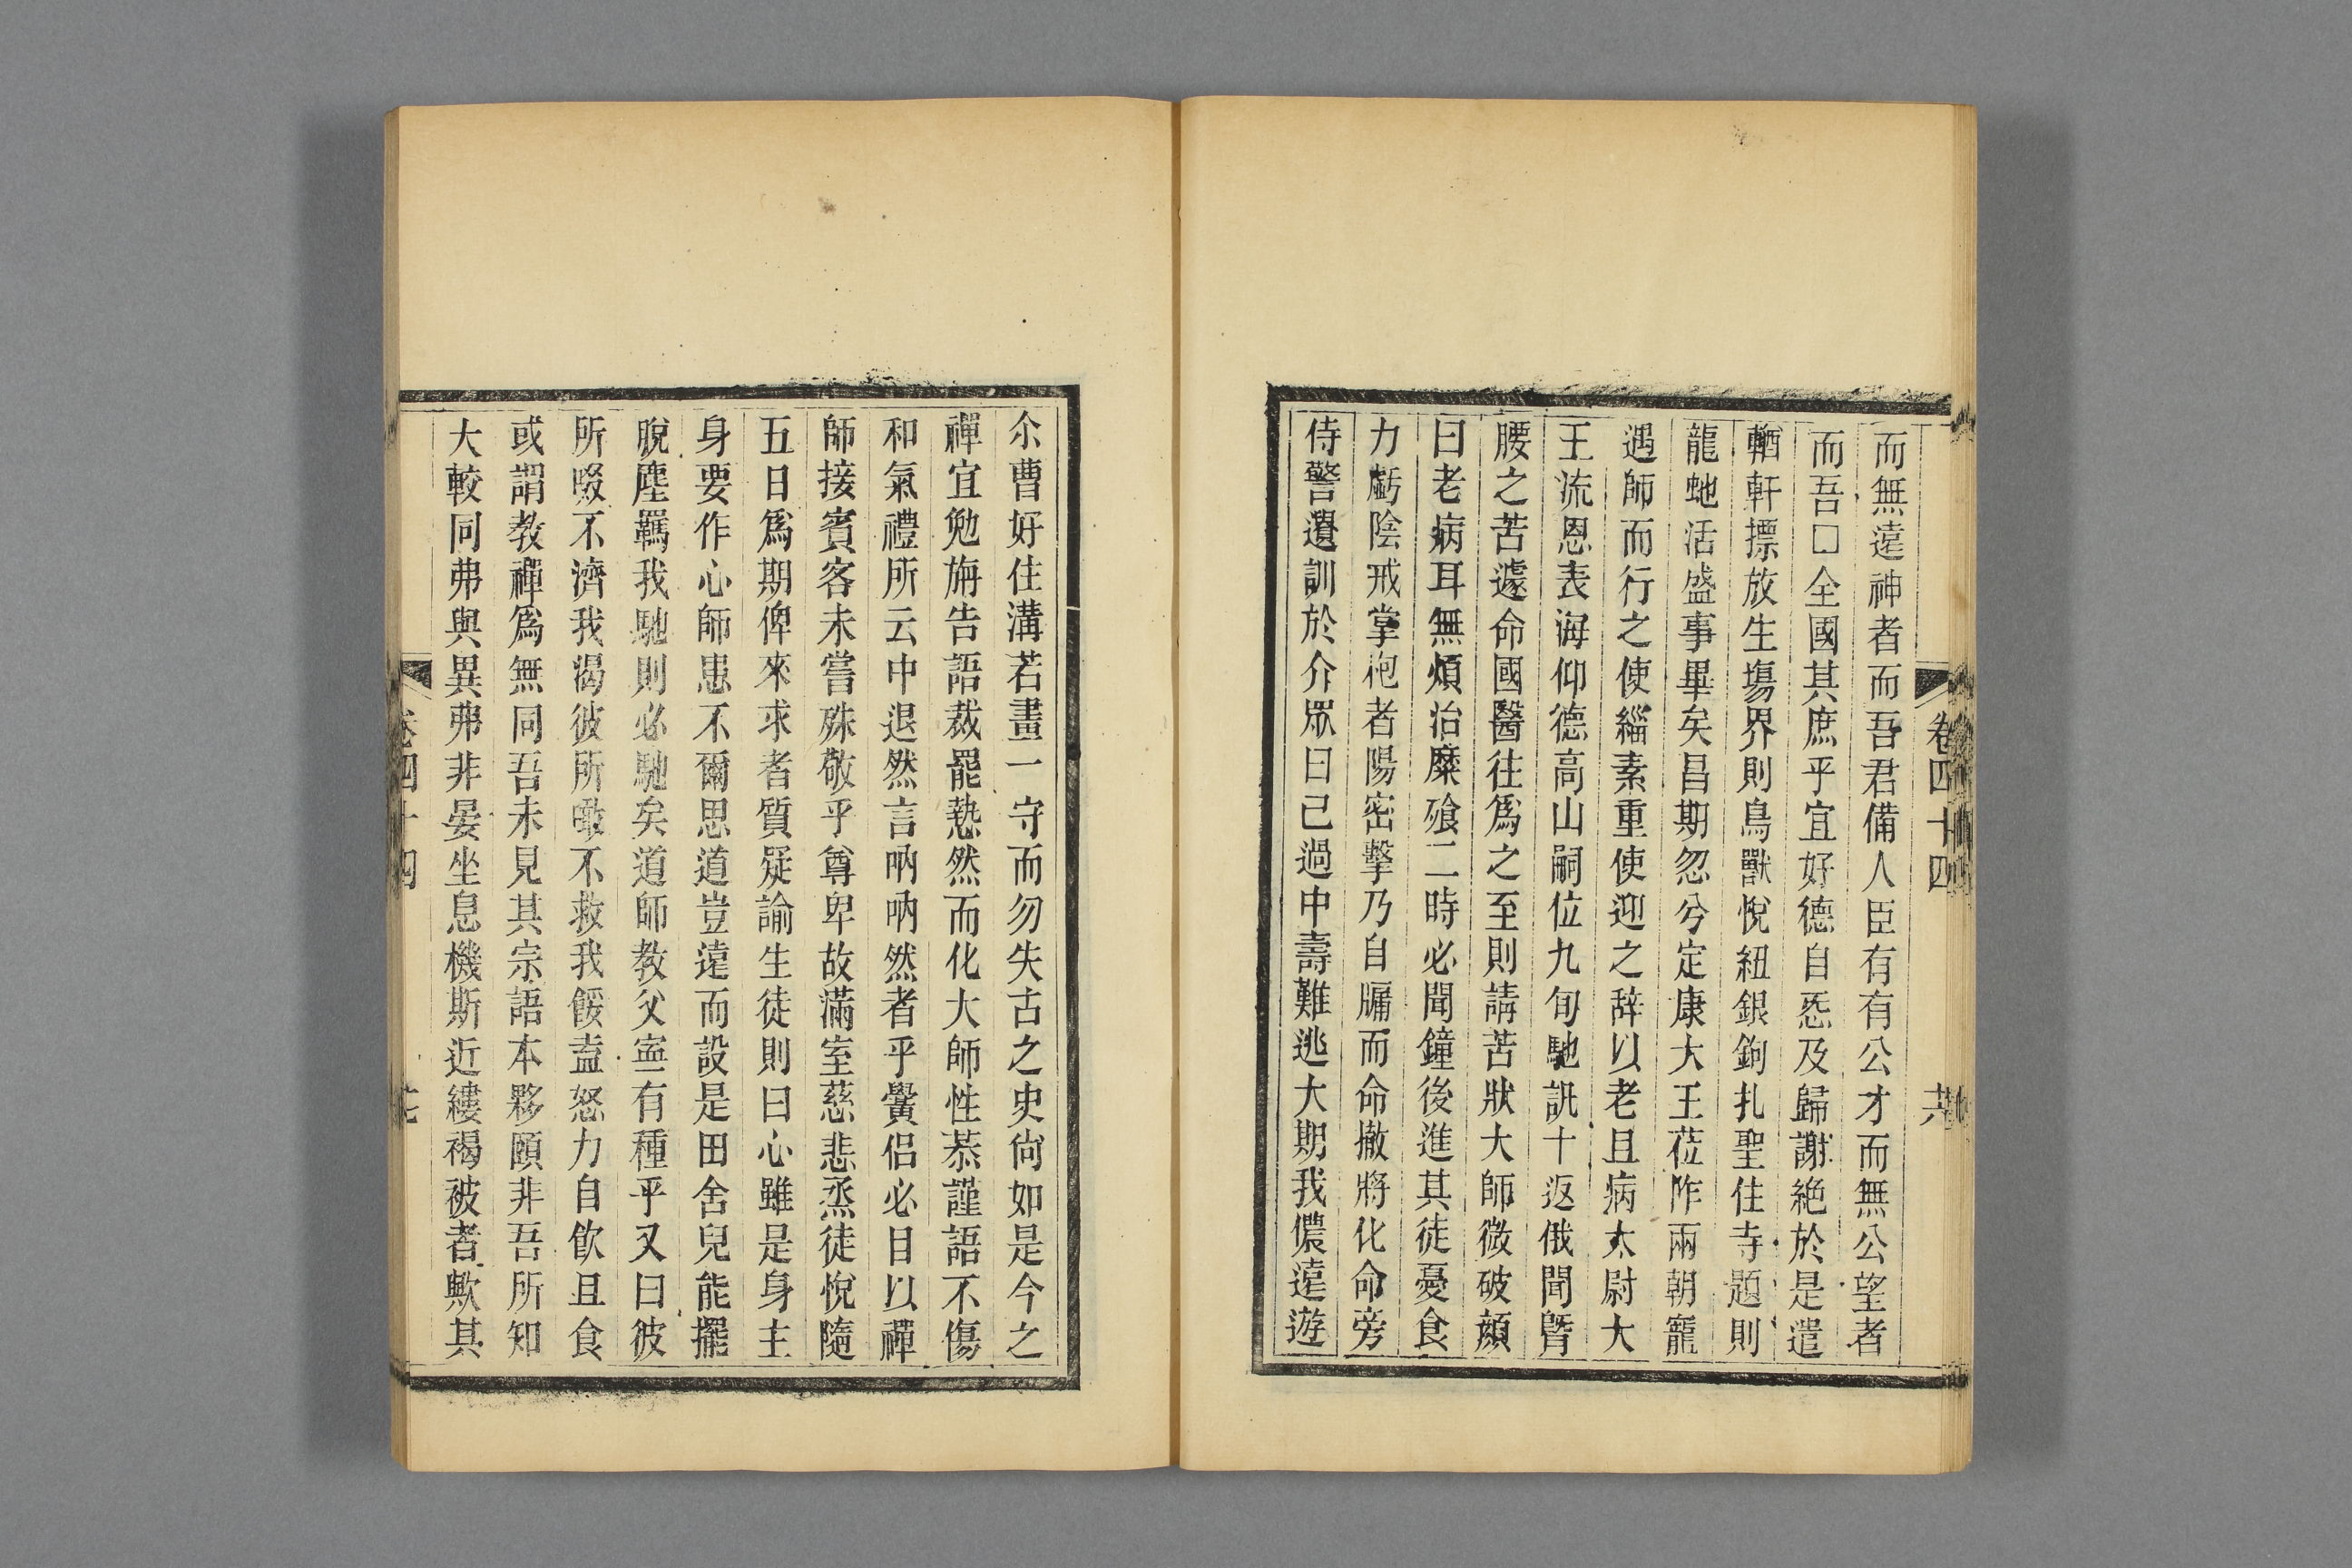 卷四十四
而無遠神者而吾君備人臣有有公才而無公望者
而吾□全國其庶乎宜好德自恣及歸謝絶於是遣
輶軒摽放生塲界則鳥獸悅紐銀鉤扎聖住寺題則
龍虵活盛事畢矣昌期忽兮定康大王莅阼兩朝寵
遇師而行之使緇素重使迎之辞以老且病太尉大
王流恩表海仰德高山嗣位九旬馳訊十返俄聞暨
腰之苦遽命國醫往爲之至則請苦狀大師微破顔
曰老病耳無煩治糜飱二時必聞鐘後進其徒憂食
力虧陰戒掌枹者陽密擊乃自牖而命撤將化命旁
侍警遺訓於介眾曰已過中壽難逃大期我儂遠遊
尒曹好住溝若畫一守而勿失古之史尙如是今之
禪宜勉旃告語裁罷㷀然而化大師性恭謹語不傷
和氣禮所云中退然言吶吶然者乎黌侣必目以禪
師接賓客未嘗殊敬乎尊卑故滿室慈悲烝徒悅隨
五日爲期俾來求者質疑諭生徒則曰心雖是身主
身要作心師患不爾思道豈遠而設是田舍兒能擺
脫塵羈我馳則必馳矣道師教父寍有種乎又曰彼
所啜不濟我渴彼所噉不救我餒盍怒力自飮且食
或謂教禪爲無同吾未見其宗語本夥頤非吾所知
大較同弗與異弗非晏坐息機斯近縷褐被者歟其
卷四十四